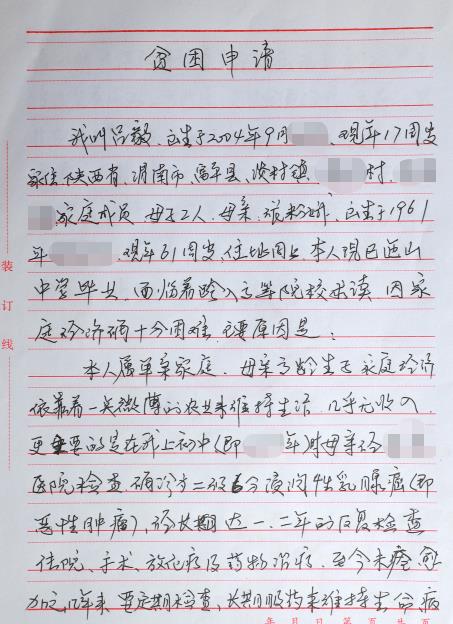 贫困申请
我叫吕毅，出生于2004年9月 ，现年17周岁
家住陕西省，渭南市，富平县，淡村镇 村，
家庭成员，母子2人，母亲， ，出生于1961
年 ，现年61周岁，住址同上，本人现已 山
中学毕业，面临着跨入高等院校求读，因家
庭经济确十分困难，主要原因是：
本人属单亲家庭，母亲高龄生 家庭经济
依靠着一点微薄的农业来维持生活，几乎无收入，
更重要的是在我上初中（即 年）时母亲经
医院检查确诊为二级 分浸润性乳腺癌（即
恶性肿瘤）经长期达一、二年的反复检查
住院、手术、放化疗及药物治疗，至今未痊愈
加之几年来，要定期检查，长期服药来维持生命，病
装订线
年 月 日 第 页 共 页